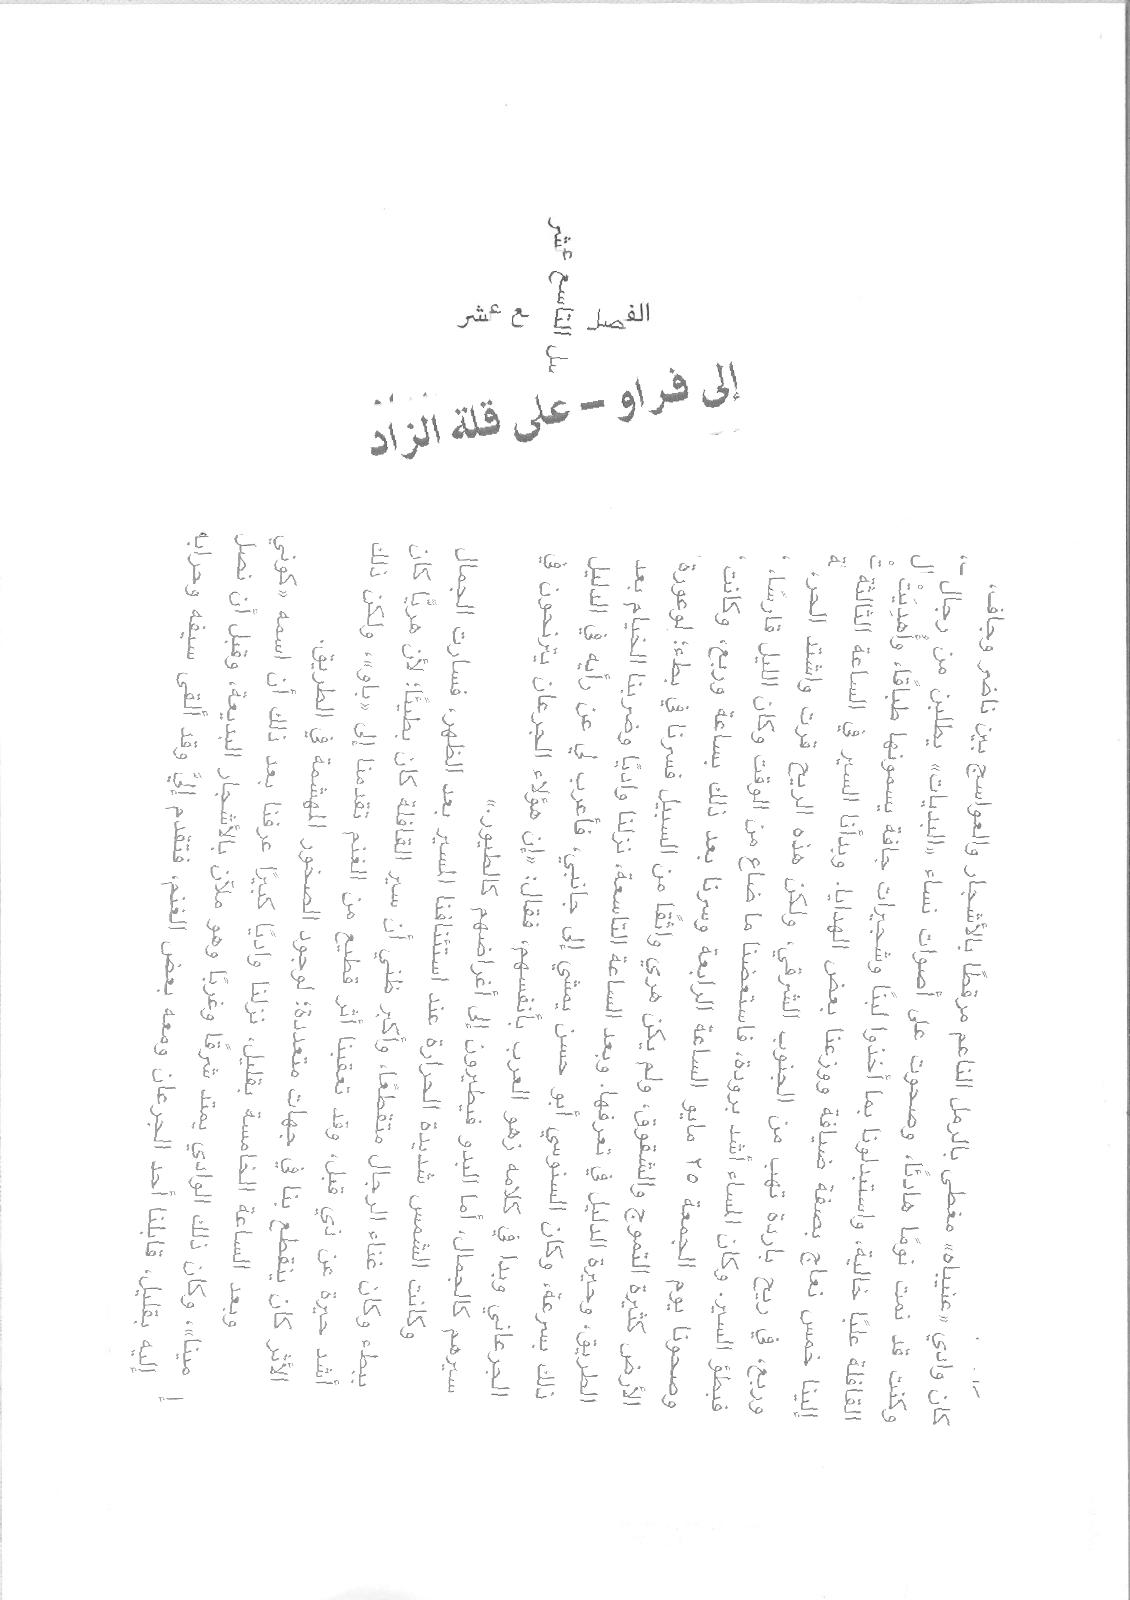 الفصل التاسع عشر
إلى فراو – على قلة الزاد
كان وادي «عنيباه» مغطى بالرمل الناعم مرقطًا بالأشجار والعواسج بين ناضر وجاف،
وكنت قد نمت نومًا هادئًا، وصحوت على أصوات نساء «البديات» يطلبن من رجال
القافلة علبًا خالية، واستبدلونا بما أخذوا لبنًا وشجيرات جافة يسمونها طباقًا، وأُهديَتْ
إلينا خمس نعاج بصفة ضيافة ووزعنا بعض الهدايا. وبدأنا السير في الساعة الثالثة
وربع، في ريح باردة تهب من الجنوب الشرقي، ولكن هذه الريح قرت واشتد الحر،
فبطؤ السير. وكان المساء أشد برودة، فاستعضنا ما ضاع من الوقت وكان الليل قارسًا،
وصحونا يوم الجمعة ٢٥ مايو الساعة الرابعة وسرنا بعد ذلك بساعة وربع، وكانت
الأرض كثيرة التموج والشقوق، ولم يكن هري واثقًا من السبيل فسرنا في بطء؛ لوعورة
الطريق، وحيرة الدليل في تعرفها. وبعد الساعة التاسعة، نزلنا واديًا وضربنا الخيام بعد
ذلك بسرعة، وكان السنوسي أبو حسن يمشي إلى جانبي، فأعرب لي عن رأيه في الدليل
الجرعاني وبدا في كلامه زهو العرب بأنفسهم، فقال: «إن هؤلاء الجرعان يترنحون في
سيرهم كالجمال، أما البدو فيطيرون إلى أغراضهم كالطيور.»
وكانت الشمس شديدة الحرارة عند استئنافنا المسير بعد الظهر، فسارت الجمال
ببطء وكان غناء الرجال متقطعًا، وأكبر ظني أن سير القافلة كان بطيئًا؛ لأن هريًّا كان
أشد حيرة عن ذي قبل، وقد تعقبنا أثر قطيع من الغنم تقدمنا إلى «باو»، ولكن ذلك
الأثر كان ينقطع بنا في جهات متعددة؛ لوجود الصخور المهشمة في الطريق.
وبعد الساعة الخامسة بقليل، نزلنا واديًا كبيرًا عرفنا بعد ذلك أن اسمه «كوني
مينا»، وكان ذلك الوادي يمتد شرقًا وغربًا وهو ملآن بالأشجار البديعة، وقبل أن نصل
إليه بقليل، قابلنا أحد الجرعان ومعه بعض الغنم، فتقدم إليَّ وقد ألقى سيفه وحرابه